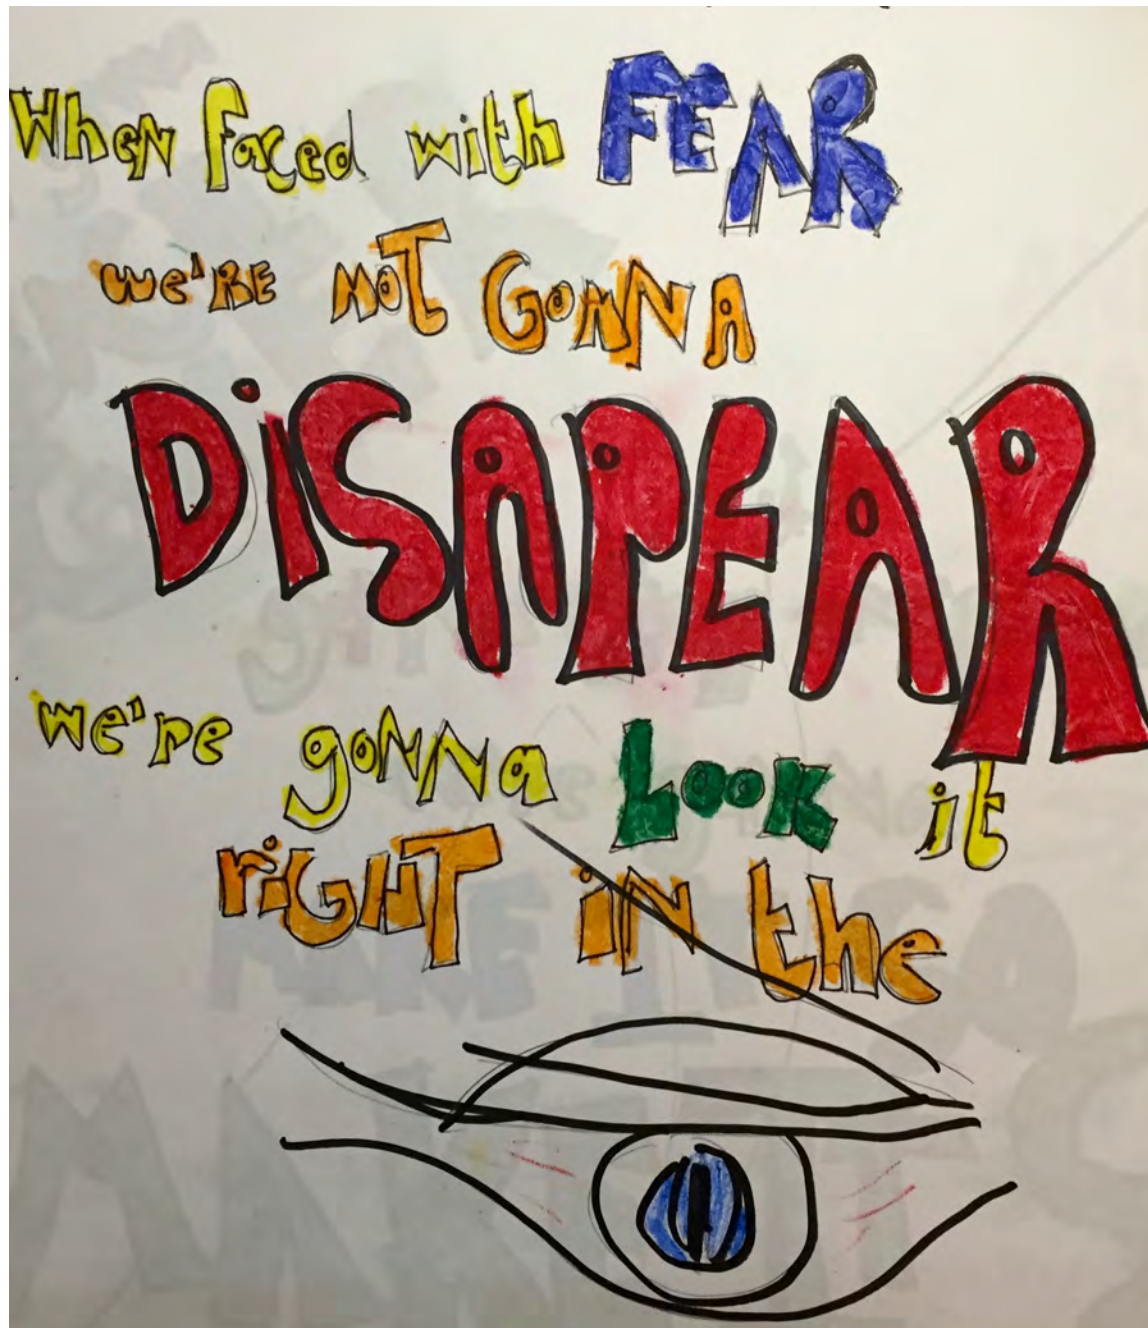 When faced with FEAR
we'RE NOT GONNA
DiSAPEAR
we're goNNa Look it
riGHT iN the